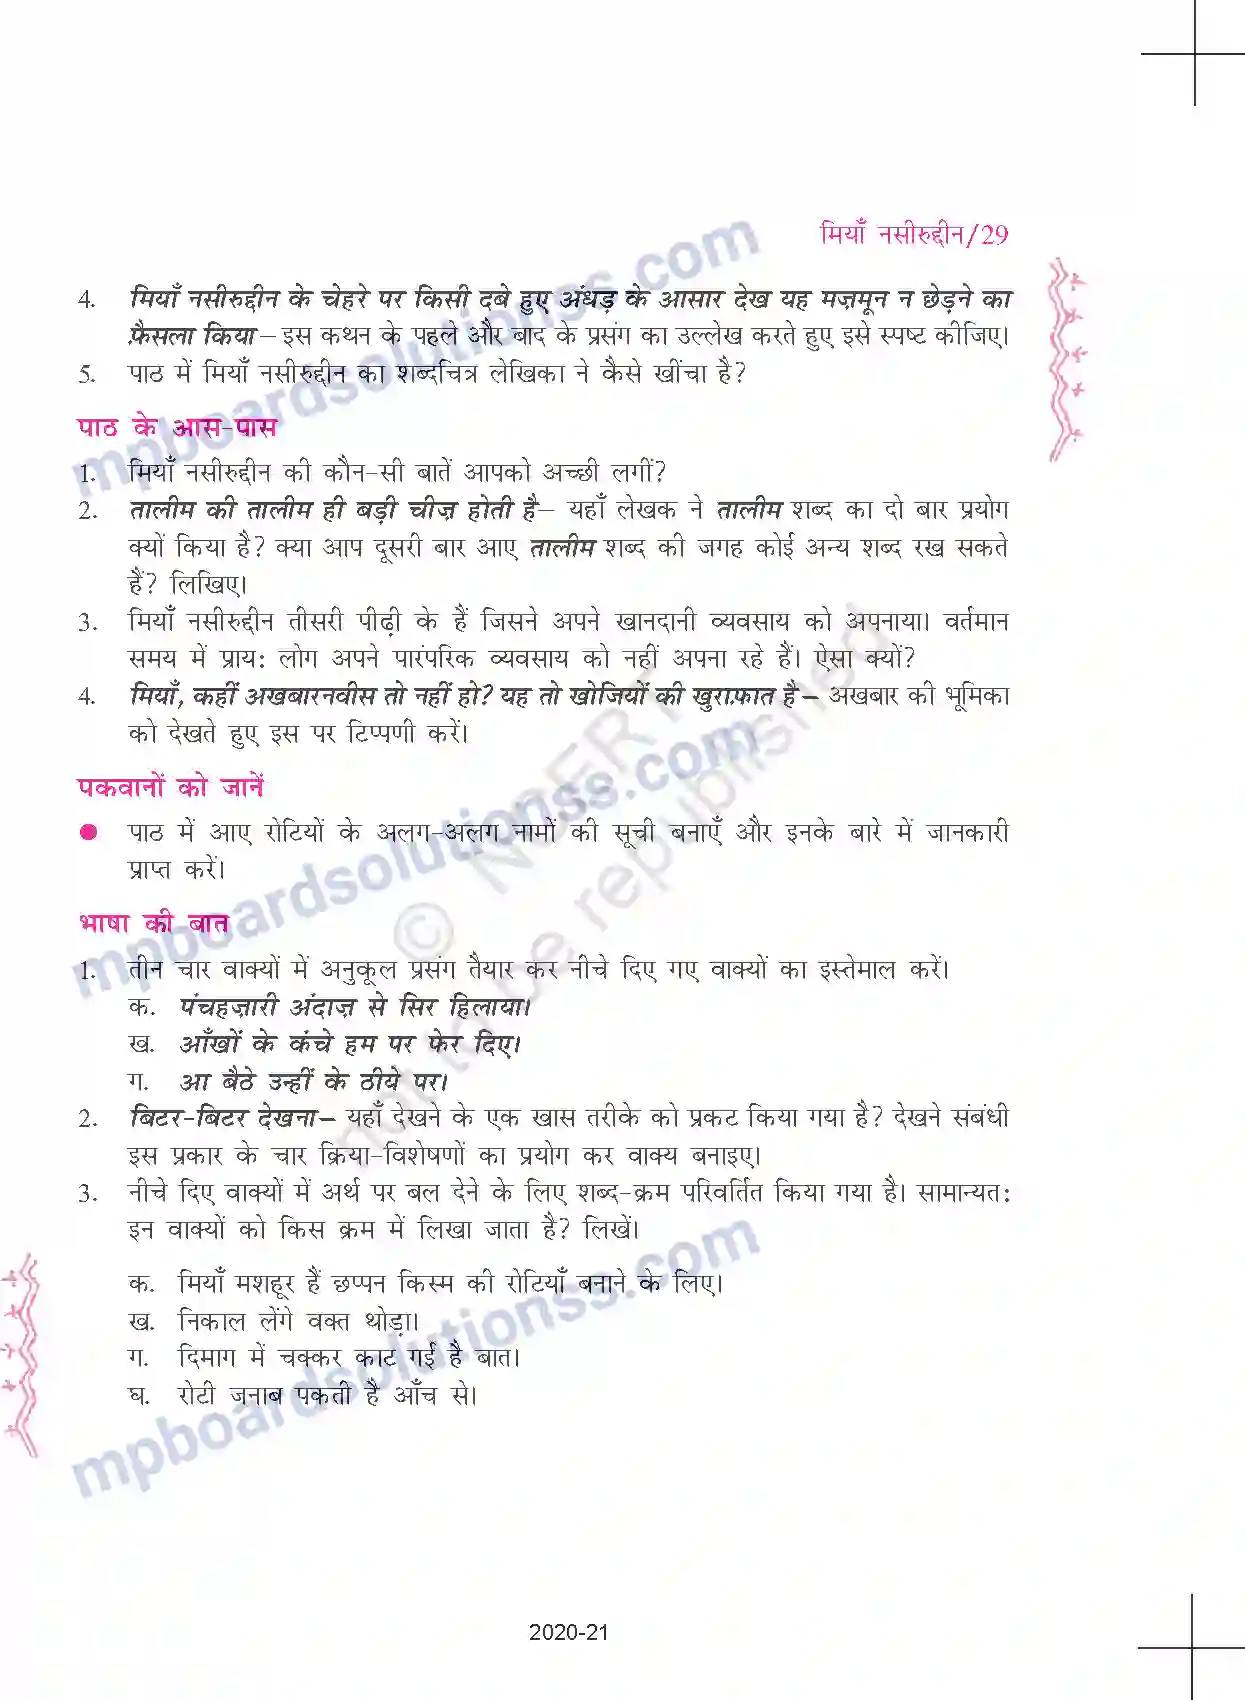 मियाँ नसीरुद्दीन/29
4. मियाँ नसीरुद्दीन के चेहरे पर किसी दबे हुए अंधड़ के आसार देख यह मज़मून न छेड़ने का
फ़ैसला किया – इस कथन के पहले और बाद के प्रसंग का उल्लेख करते हुए इसे स्पष्ट कीजिए।
5. पाठ में मियाँ नसीरुद्दीन का शब्दचित्र लेखिका ने कैसे खींचा है?
पाठ के आस-पास
1. मियाँ नसीरुद्दीन की कौन-सी बातें आपको अच्छी लगीं?
2. तालीम की तालीम ही बड़ी चीज़ होती है– यहाँ लेखक ने तालीम शब्द का दो बार प्रयोग
क्यों किया है? क्या आप दूसरी बार आए तालीम शब्द की जगह कोई अन्य शब्द रख सकते
हैं? लिखिए।
3. मियाँ नसीरुद्दीन तीसरी पीढ़ी के हैं जिसने अपने खानदानी व्यवसाय को अपनाया। वर्तमान
समय में प्राय: लोग अपने पारंपरिक व्यवसाय को नहीं अपना रहे हैं। ऐसा क्यों?
4. मियाँ, कहीं अखबारनवीस तो नहीं हो? यह तो खोजियों की खुराफ़ात है – अखबार की भूमिका
को देखते हुए इस पर टिप्पणी करें।
पकवानों को जानें
● पाठ में आए रोटियों के अलग-अलग नामों की सूची बनाएँ और इनके बारे में जानकारी
प्राप्त करें।
भाषा की बात
1. तीन चार वाक्यों में अनुकूल प्रसंग तैयार कर नीचे दिए गए वाक्यों का इस्तेमाल करें।
क. पंचहज़ारी अंदाज़ से सिर हिलाया।
ख. आँखों के कंचे हम पर फेर दिए।
ग. आ बैठे उन्हीं के ठीये पर।
2. बिटर-बिटर देखना – यहाँ देखने के एक खास तरीके को प्रकट किया गया है? देखने संबंधी
इस प्रकार के चार क्रिया-विशेषणों का प्रयोग कर वाक्य बनाइए।
3. नीचे दिए वाक्यों में अर्थ पर बल देने के लिए शब्द-क्रम परिवर्तित किया गया है। सामान्यत:
इन वाक्यों को किस क्रम में लिखा जाता है? लिखें।
क. मियाँ मशहूर हैं छप्पन किस्म की रोटियाँ बनाने के लिए।
ख. निकाल लेंगे वक्त थोड़ा।
ग. दिमाग में चक्कर काट गई है बात।
घ. रोटी जनाब पकती है आँच से।
2020-21
mpboardsolutionss.com
mpboardsolutionss.com
mpboardsolutionss.com
© NCERT
not to be republished